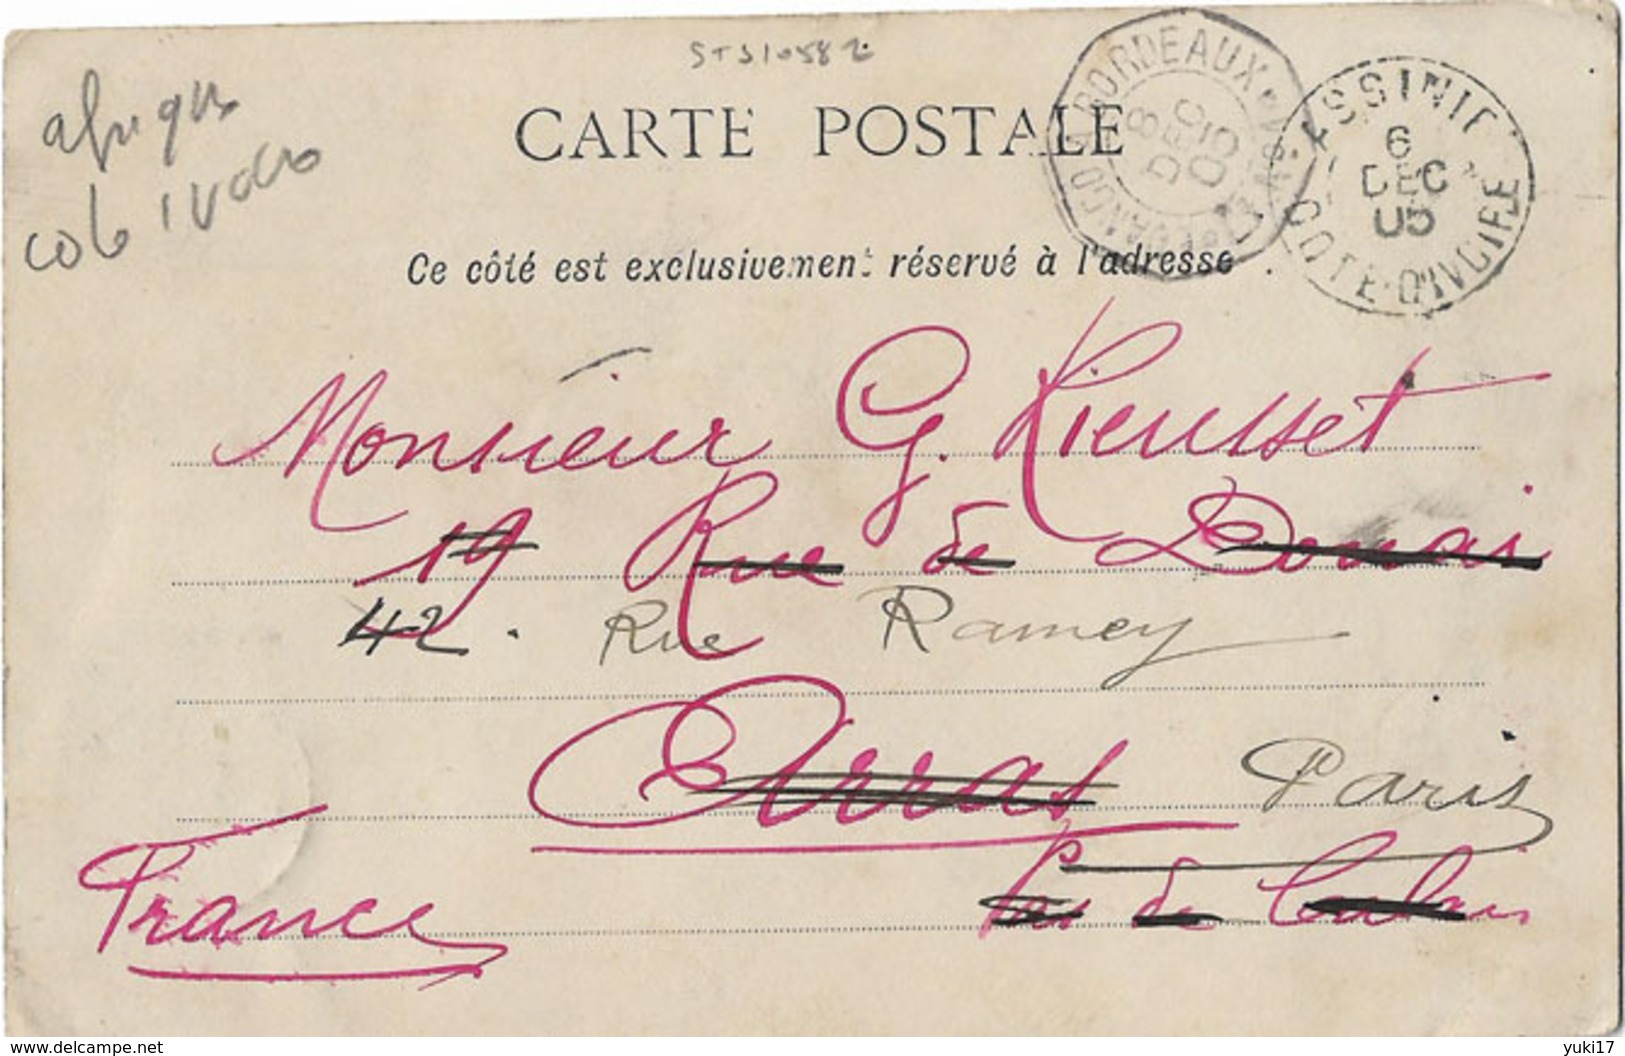 STS10582
afrique
cote ivoire
CARTE POSTALE
LOANGO A BORDEAUX
8
DEC
05
ASSINIE
6
DEC
05
COTE-D'IVOIRE
Ce côté est exclusivement réservé à l'adresse
Monsieur G. Lieusset
19 Rue de Douai
42. Rue Ramey
Arras Paris
Pas de Calais
France
www.delcampe.net
yuki17